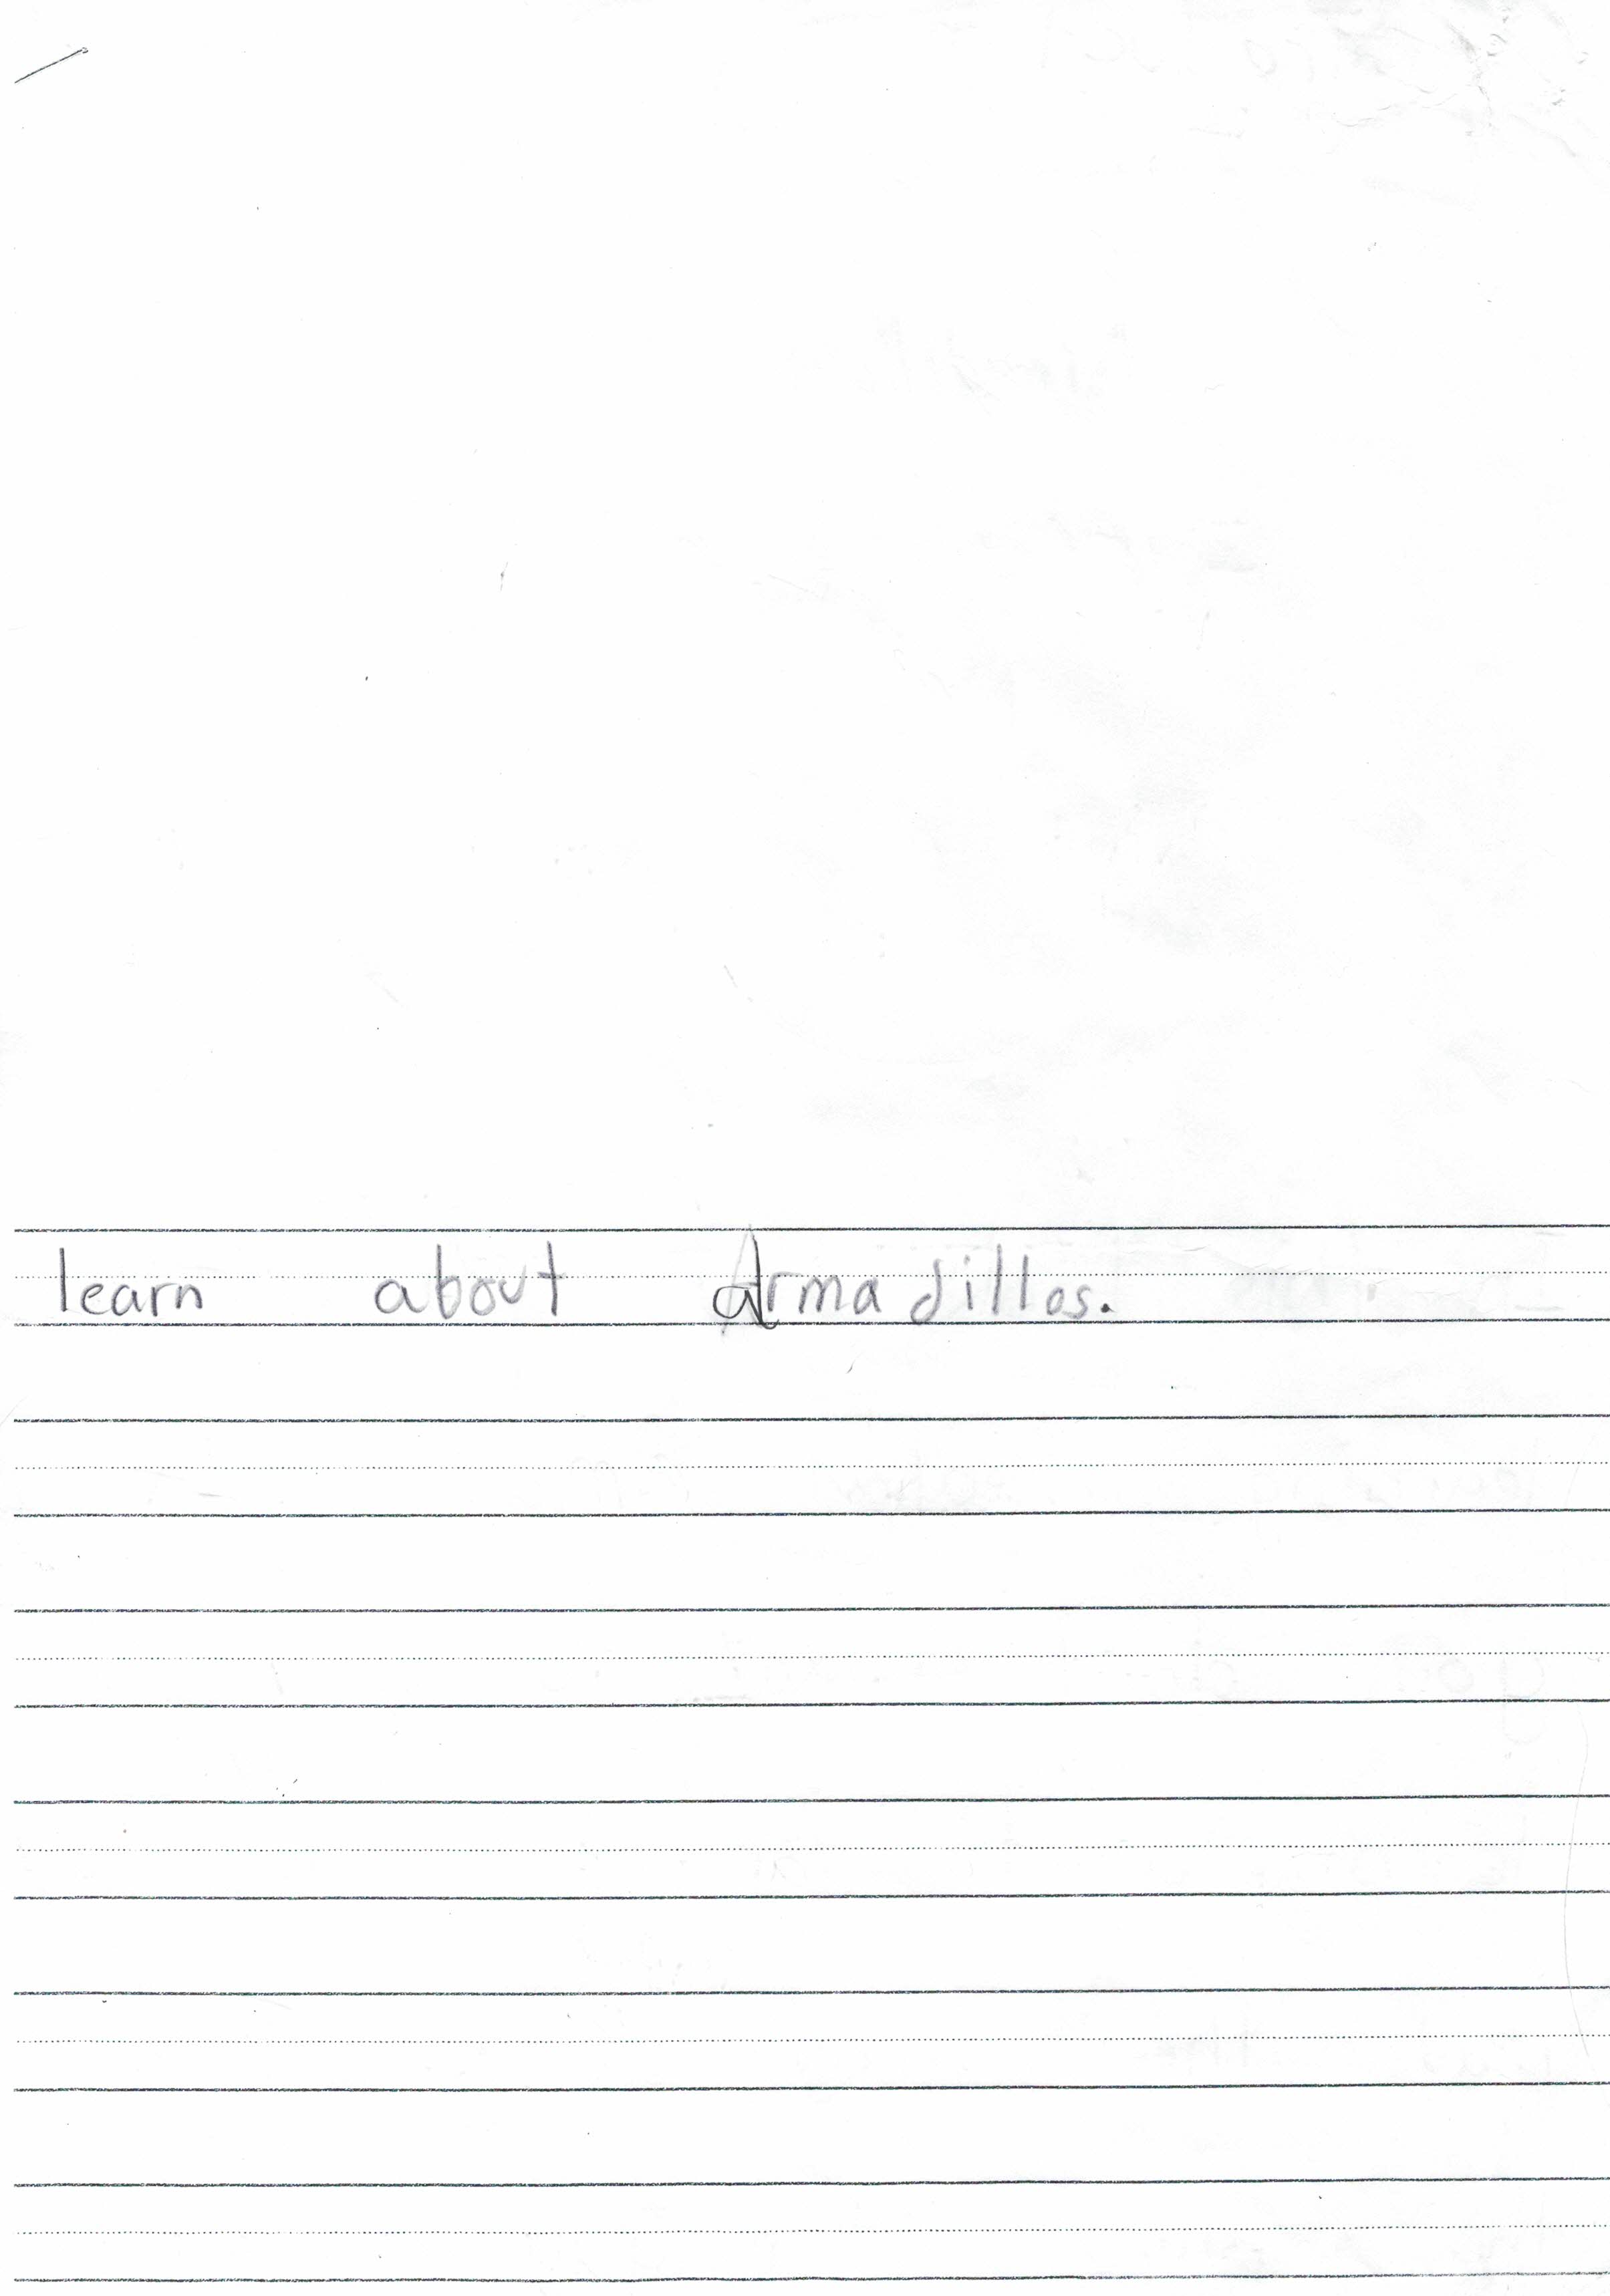 learn about armadillos.